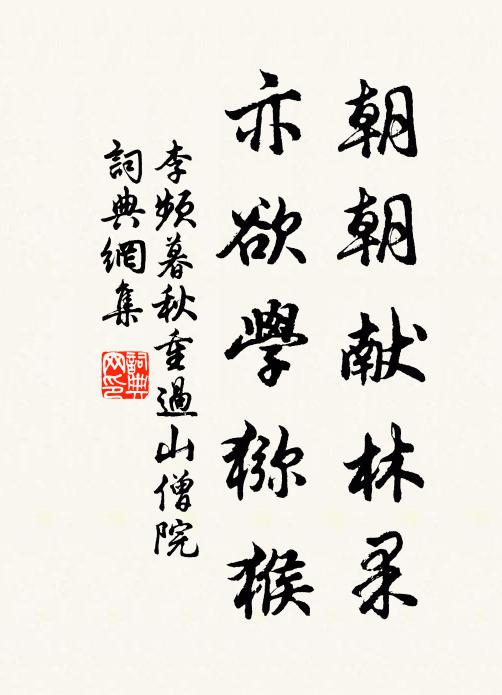 朝朝献林果
亦欲學猕猴
李频暮秋重過山僧院
詞典網集
詞典
网印